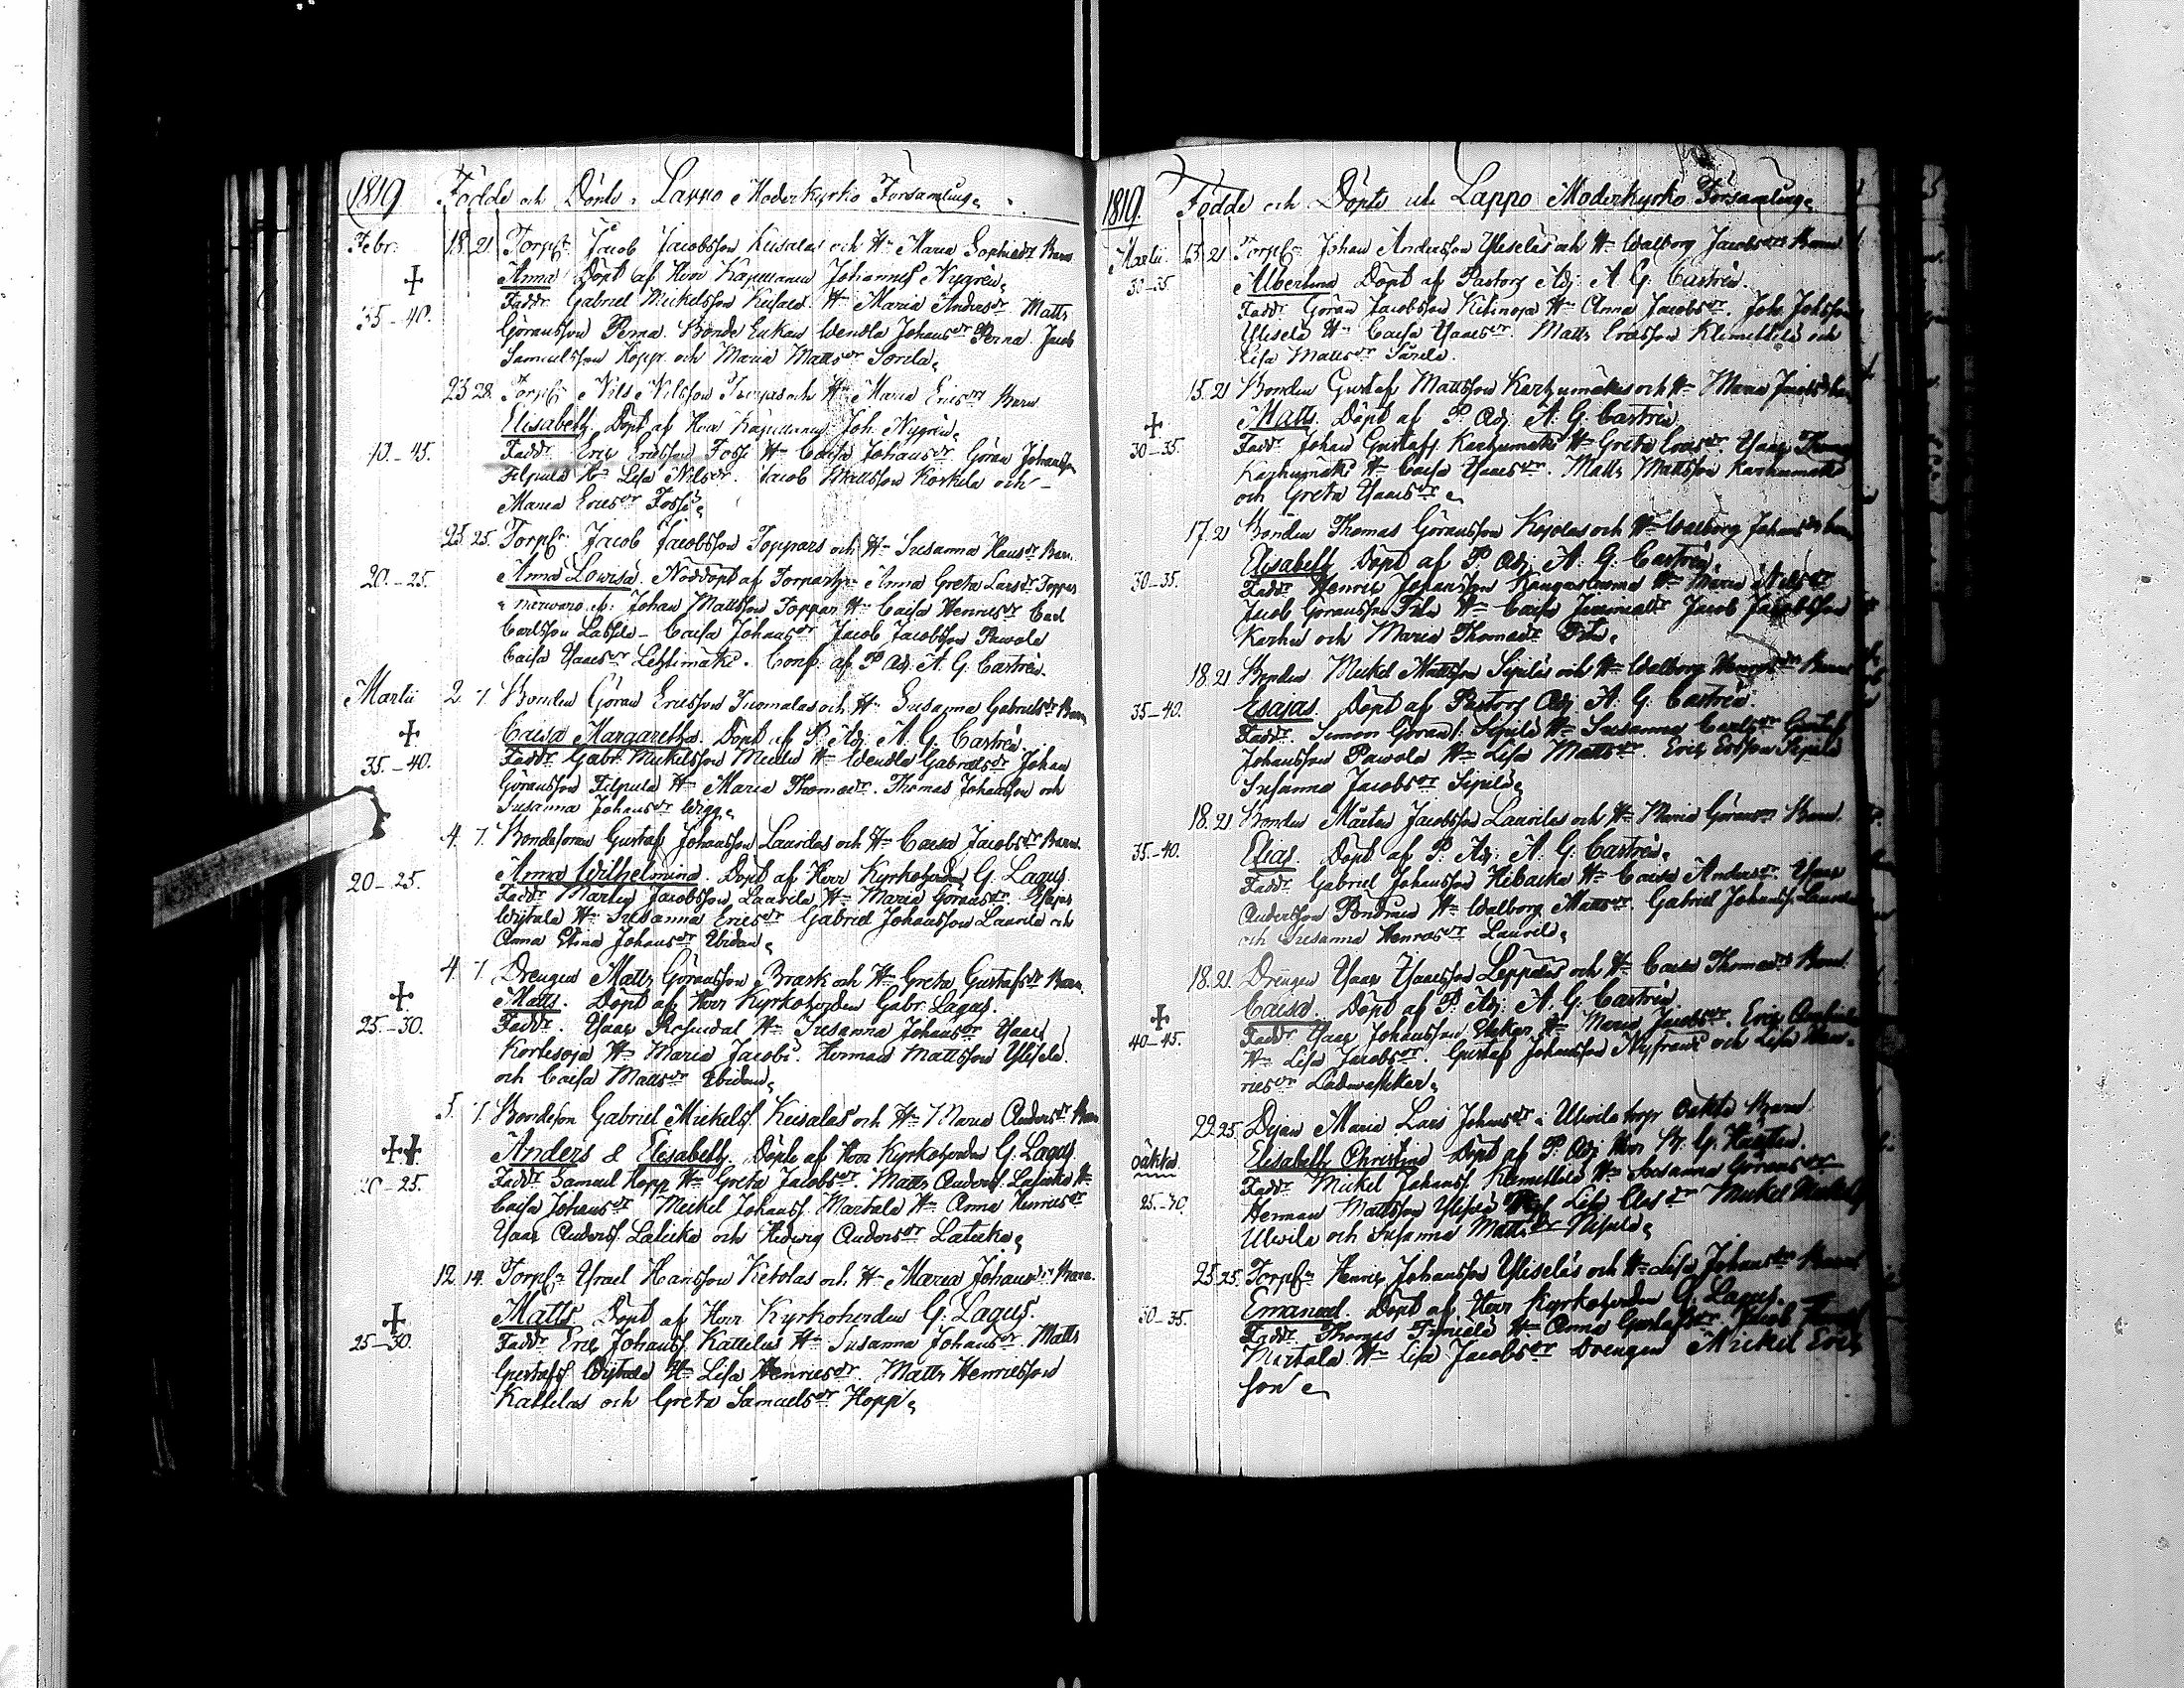 1819 Födde och Döpte i Lappo Moderkyrko Församling
Febr. 18. 21. Torp. Jacob Jacobsson Keisalas och H. Maria Barn
Anna Döpt af Herr Kapellanen Johannes Nygrén
35-40. Fadd. Gabriel Mickelsson H. Maria Andersdr Matts
Göransson Perna. Bonde Enkan Wendla Johansdr Perna. Jacob
Samuelsson Hopp och Maria Mattsdr Sorila
23 28. Torp. Nils Nilsson och H. Maria Ericsdr Barn
Elisabeth. Döpt af Herr Kapellanen Joh. Nygrén
40-45. Fadd. Eric Ericsson H. Caisa Johansdr Göran Johansson
Filpula H. Lisa Nilsdr. Jacob Mattsson Korkela och
Maria Ericsdr
25 25. Torp. Jacob Jacobsson Toppars och H. Susanna Hansdr Barn.
20.-25. Anna Lowisa. Nöddöpt af Anna Greta Larsdr Toppar
i närwaro af: Johan Mattsson Toppar H. Caisa Henricsdr Carl
Carlsson Lassila - Caisa Johansdr Jacob Jacobsson Pawola
Caisa Isaacsdr Lehtimäki. Conf. af P. Adj. A. G. Castrén.
Martii 2. 7. Bonden Göran Ericsson Tuomalas och H. Susanna Gabrielsdr Barn
Caisa Margaretha. Döpt af P. Adj. A. G. Castrén
35.-40. Fadd. Gabr. Mickelsson H. Wendla Gabrielsdr Johan
Göransson Filpula H. Maria Thomasdr. Thomas Johansson och
Susanna Johansdr Wigg
4. 7. Bondesonen Gustaf Johansson Laurilas och H. Caisa Jacobsdr Barn.
20-25. Anna Wilhelmina. Döpt af Herr Kyrkoherden G. Lagus.
Fadd. Jacobsson Laurila H. Maria Göransdr.
H. Susanna Ericsdr Gabriel Johansson Laurila och
Anna Stina Johansdr Ibidem
4. 7. Drengen Matts Göransson Brask och H. Greta Gustafsdr Barn.
Matts. Döpt af Herr Kyrkoherden Gabr. Lagus.
25.-30. Fadd. Isaac H. Susanna Johansdr Isaac
Kortesoja H. Maria Jacobs. Herman Mattsson Ylisela.
och Caisa Mattsdr Ibidem
5. 7. Bondeson Gabriel Mickelss. Keisalas och H. Maria Andersdr Barn
Anders & Elisabeth. Döpte af Herr Kyrkoherden G. Lagus.
20-25. Fadd. Samuel Hopp H. Greta Jacobsdr. Matts Anderss. H.
Caisa Johansdr Mickel Johanss. Martala H. Anna Henricsdr
Isaac Anderss. och Hedwig Andersdr
12 14. Torp. Israel Hansson Ketolas och H. Maria Johansdr Barn.
Matts. Döpt af Herr Kyrkoherden G. Lagus.
25-30. Fadd. Eric Johanss. Kattelus H. Susanna Johansdr Matts
Gustafss. H. Lisa Henricsdr. Matts Henricsson
Kattelas och Greta Samuelsdr Hopp
1819. Födde och Döpte uti Lappo Moderkyrko Församling
Martii 15 21 Torp. Johan Andersson Yliseläs och H. Walborg Jacobsdr Barn
30-35 Albertina Döpt af Pastors Adj. A. G. Castrén.
Fadd. Göran Jacobsson Kitinoja H. Anna Jacobsdr. Joh.
Ylisela H. Caisa Isaacsdr. Matts Ericsson Klemettilä och
Lisa Mattsdr
15. 21 Bonden Gustaf Mattsson Karhumäkis och H. Maria Barn
Matts. Döpt af P. Adj. A. G. Castrén
30-35. Fadd. Johan Gustafs. Karhumäki H. Greta Ericsdr. Isaac
Karhumäki H. Caisa Isaacsdr. Matts Mattsson Karhumäki
och Greta Isaacsdr
17. 21 Bonden Thomas Göransson Kojolas och H. Walborg Johansdr Barn
Elisabeth Döpt af P. Adj. A. G. Castrén
30-35. Fadd. Henric Johansson H. Maria Nilsdr
Jacob Göransson H. Caisa Jacob Jacobsson
Karhu och Maria Thomasdr
18. 21 Bonden Mickel Mattsson Sipiläs och H. Walborg Barn
35-40. Esajas. Döpt af Pastors Adj. A. G. Castrén.
Fadd. Simon Görans. Sipilä H. Susanna Carlsdr Gustaf
Johansson Pawola H. Lisa Mattsdr. Eric Ersson Sipilä
Susanna Jacobsdr Sipilä
18. 21. Bonden Mårten Jacobsson Laurilas och H. Maria Göransdr Barn.
35-40. Elias. Döpt af P. Adj. A. G. Castrén
Fadd. Gabriel Johansson H. Caisa Andersdr. Isaac
Andersson H. Walborg Mattsdr. Gabriel Johanss. Laurila
och Susanna Henricsdr Laurila
18. 21. Drengen Isaac Isaacsson Leppälas och H. Caisa Thomasdr Barn
Caisa. Döpt af P. Adj. A. G. Castrén
40-45. Fadd. Isaac Johansson H. Maria Jacobsdr. Eric
H. Lisa Jacobsdr. Gustaf Johansson och Lisa Hen-
ricsdr
22. 25. Pijan Maria Lars Johansdr i Uwila torp oäkta Barn
oäkta Elisabeth Christina Döpt af P. Adj. Herr
25.-30. Fadd. Mickel Johanss. Klemettilä H. Susanna Göransdr
Herman Mattsson Ylisela Lisa Mickel
Uwila och Susanna Mattsdr
25 25. Torp. Henric Johansson Yliseläs och H. Lisa Johansdr Barn
30-35. Emanuel. Döpt af Herr Kyrkoherden G. Lagus.
Fadd. Thomas H. Anna Gustafsdr. Jacob
Martala H. Lisa Jacobsdr Drengen Mickel Erics
son